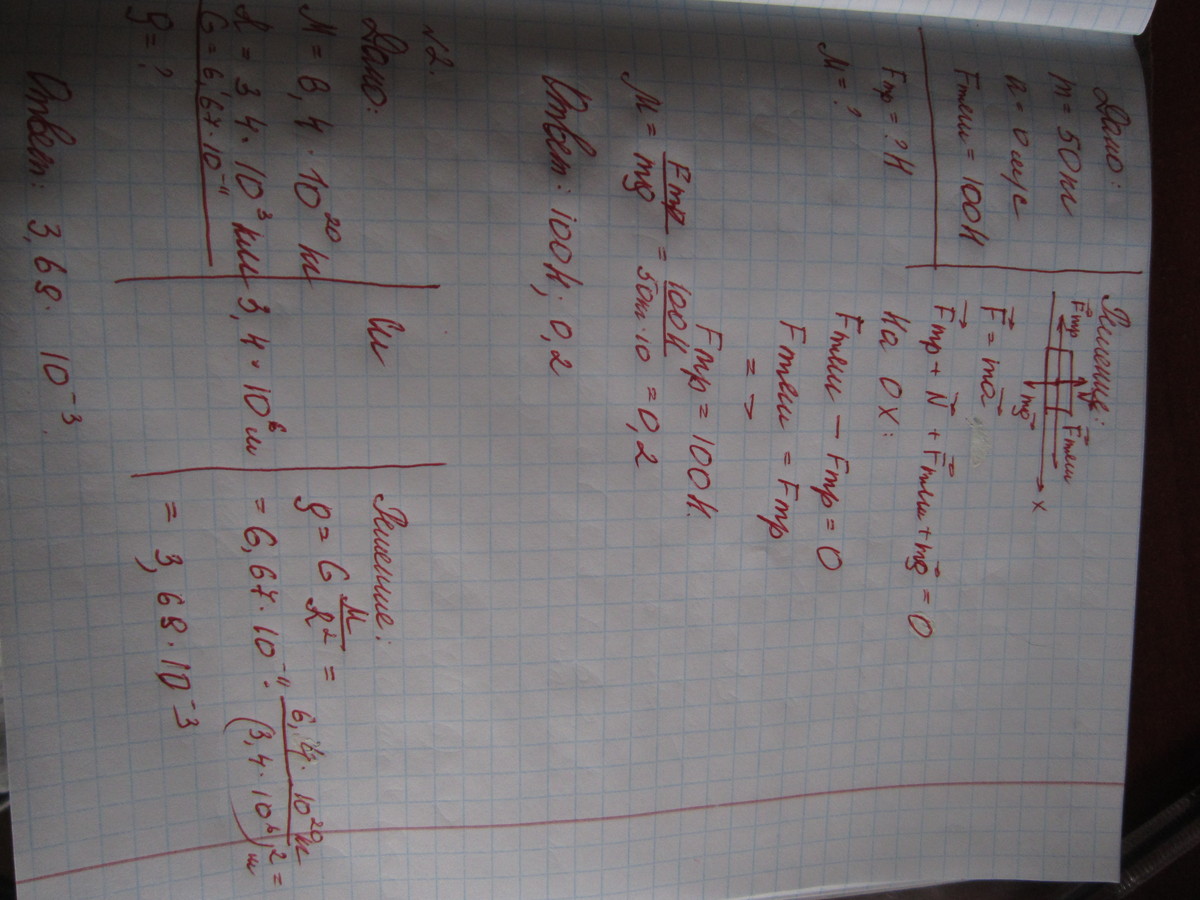 Дано:
m = 50 кг
a = 0 м/с
Fтяги = 100 Н
Fтр = ? Н
M = ?
Решение:
Fтр N Fтяги
mg X
F = ma
Fтр + N + Fтяги + mg = 0
На OX:
Fтяги - Fтр = 0
Fтяги = Fтр
=>
Fтр = 100 Н.
M = Fтр / mg = 100 Н / 50 кг · 10 = 0,2
Ответ: 100 Н; 0,2
№2.
Дано:
M = 6,4 · 10²⁰ кг
R = 3,4 · 10³ км
G = 6,67 · 10⁻¹¹
g = ?
Си
3,4 · 10⁶ м
Решение:
g = G M / R² =
= 6,67 · 10⁻¹¹ · 6,4 · 10²⁰ кг / (3,4 · 10⁶)² м =
= 3,69 · 10⁻³
Ответ: 3,69 · 10⁻³.